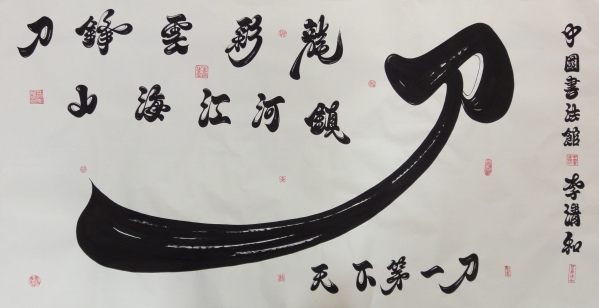 刀鋒雲彩龍
山海江河鎖
刀
天下第一刀
中國書法館 李清和